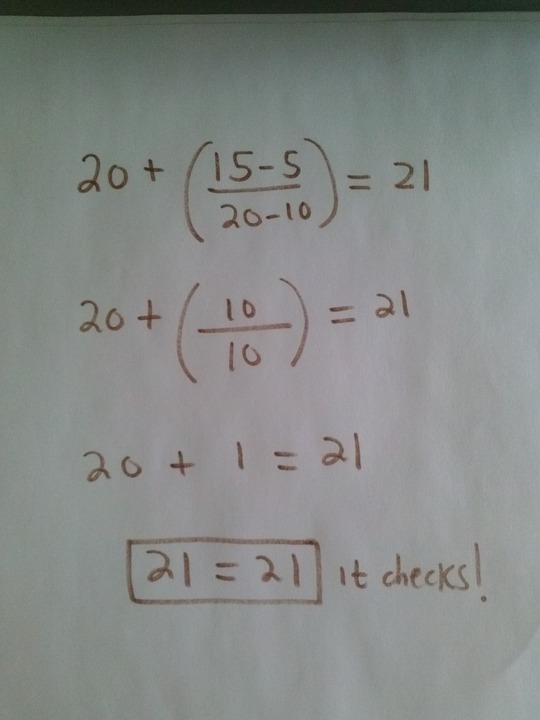 20 + (15-5/20-10) = 21
20 + (10/10) = 21
20 + 1 = 21
21 = 21 it checks!